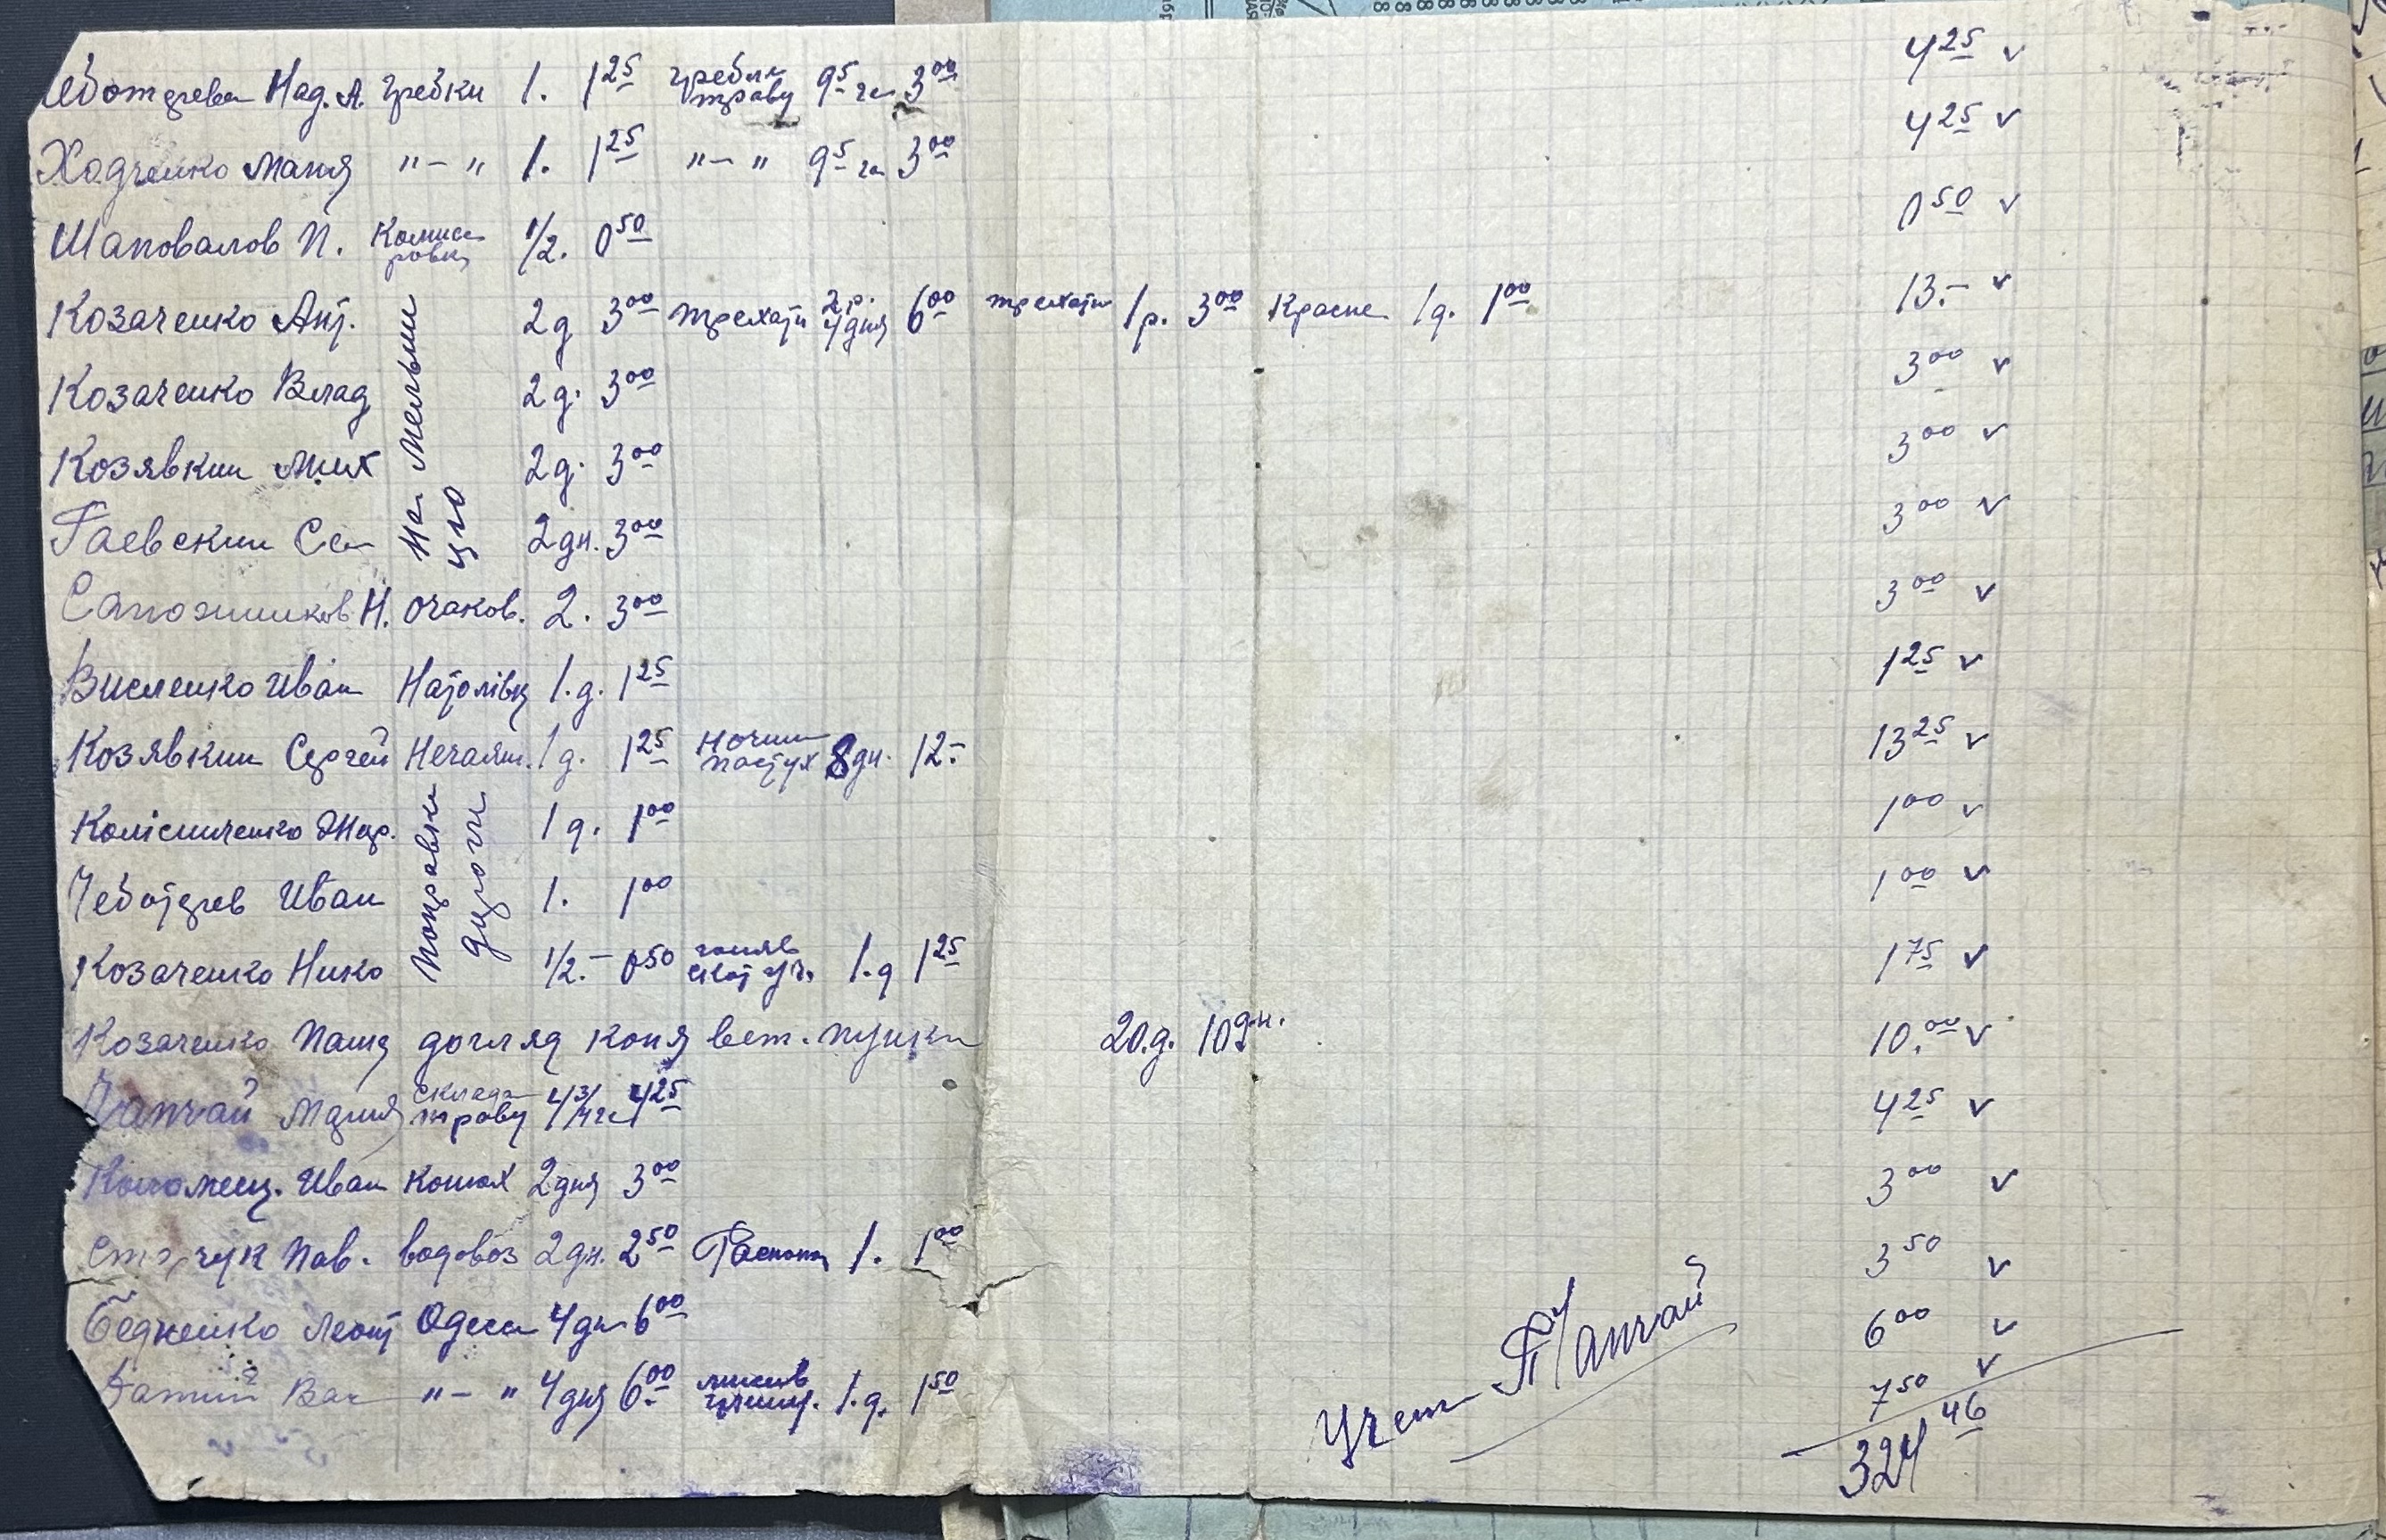 Чеботарева Над. А. гребки 1. 1 25 гребля траву 9 5 га 3 00 4 25 v
Ходченко Маня "–" 1. 1 25 "–" 9 5 га 3 00 4 25 v
Шаповалов П. 1/2. 0 50 0 50 v
Козаченко Ант. На 2 д 3 00 2 р. 4 дня 6 00 1 р. 3 00 Красне 1 д. 1 00 13.– v
Козаченко Влад 2 д. 3 00 3 00 v
Козявкин Мих 2 д. 3 00 3 00 v
Гаевский Се 2 дн. 3 00 3 00 v
Сапожников Н. Очаков. 2. 3 00 3 00 v
Висленко Иван 1. д. 1 25 1 25 v
Козявкин Сергей Нечаян. 1 д. 1 25 ночни пастух 8 дн. 12.– 13 25 v
Колісниченко Поправка дороги 1 д. 1 00 1 00 v
Чеботарев Иван 1. 1 00 1 00 v
Козаченко Нико 1/2.– 0 50 ганяв скот 1. д 1 25 1 75 v
Козаченко Паша догляд коня вет. 20. д. 10 дн. 10. 00 v
Чапчай Мария склада траву 4 3/4 га 4 25 4 25 v
Иван Конюх 2 дня 3 00 3 00 v
Пав. водовоз 2 дн. 2 50 1. 1 00 3 50 v
Бедненко Леонт Одеса 4 дн 6 00 6 00 v
"–" 4 дня 6 00 1. д. 1 50 7 50 v
Учет Чапчай 324 46